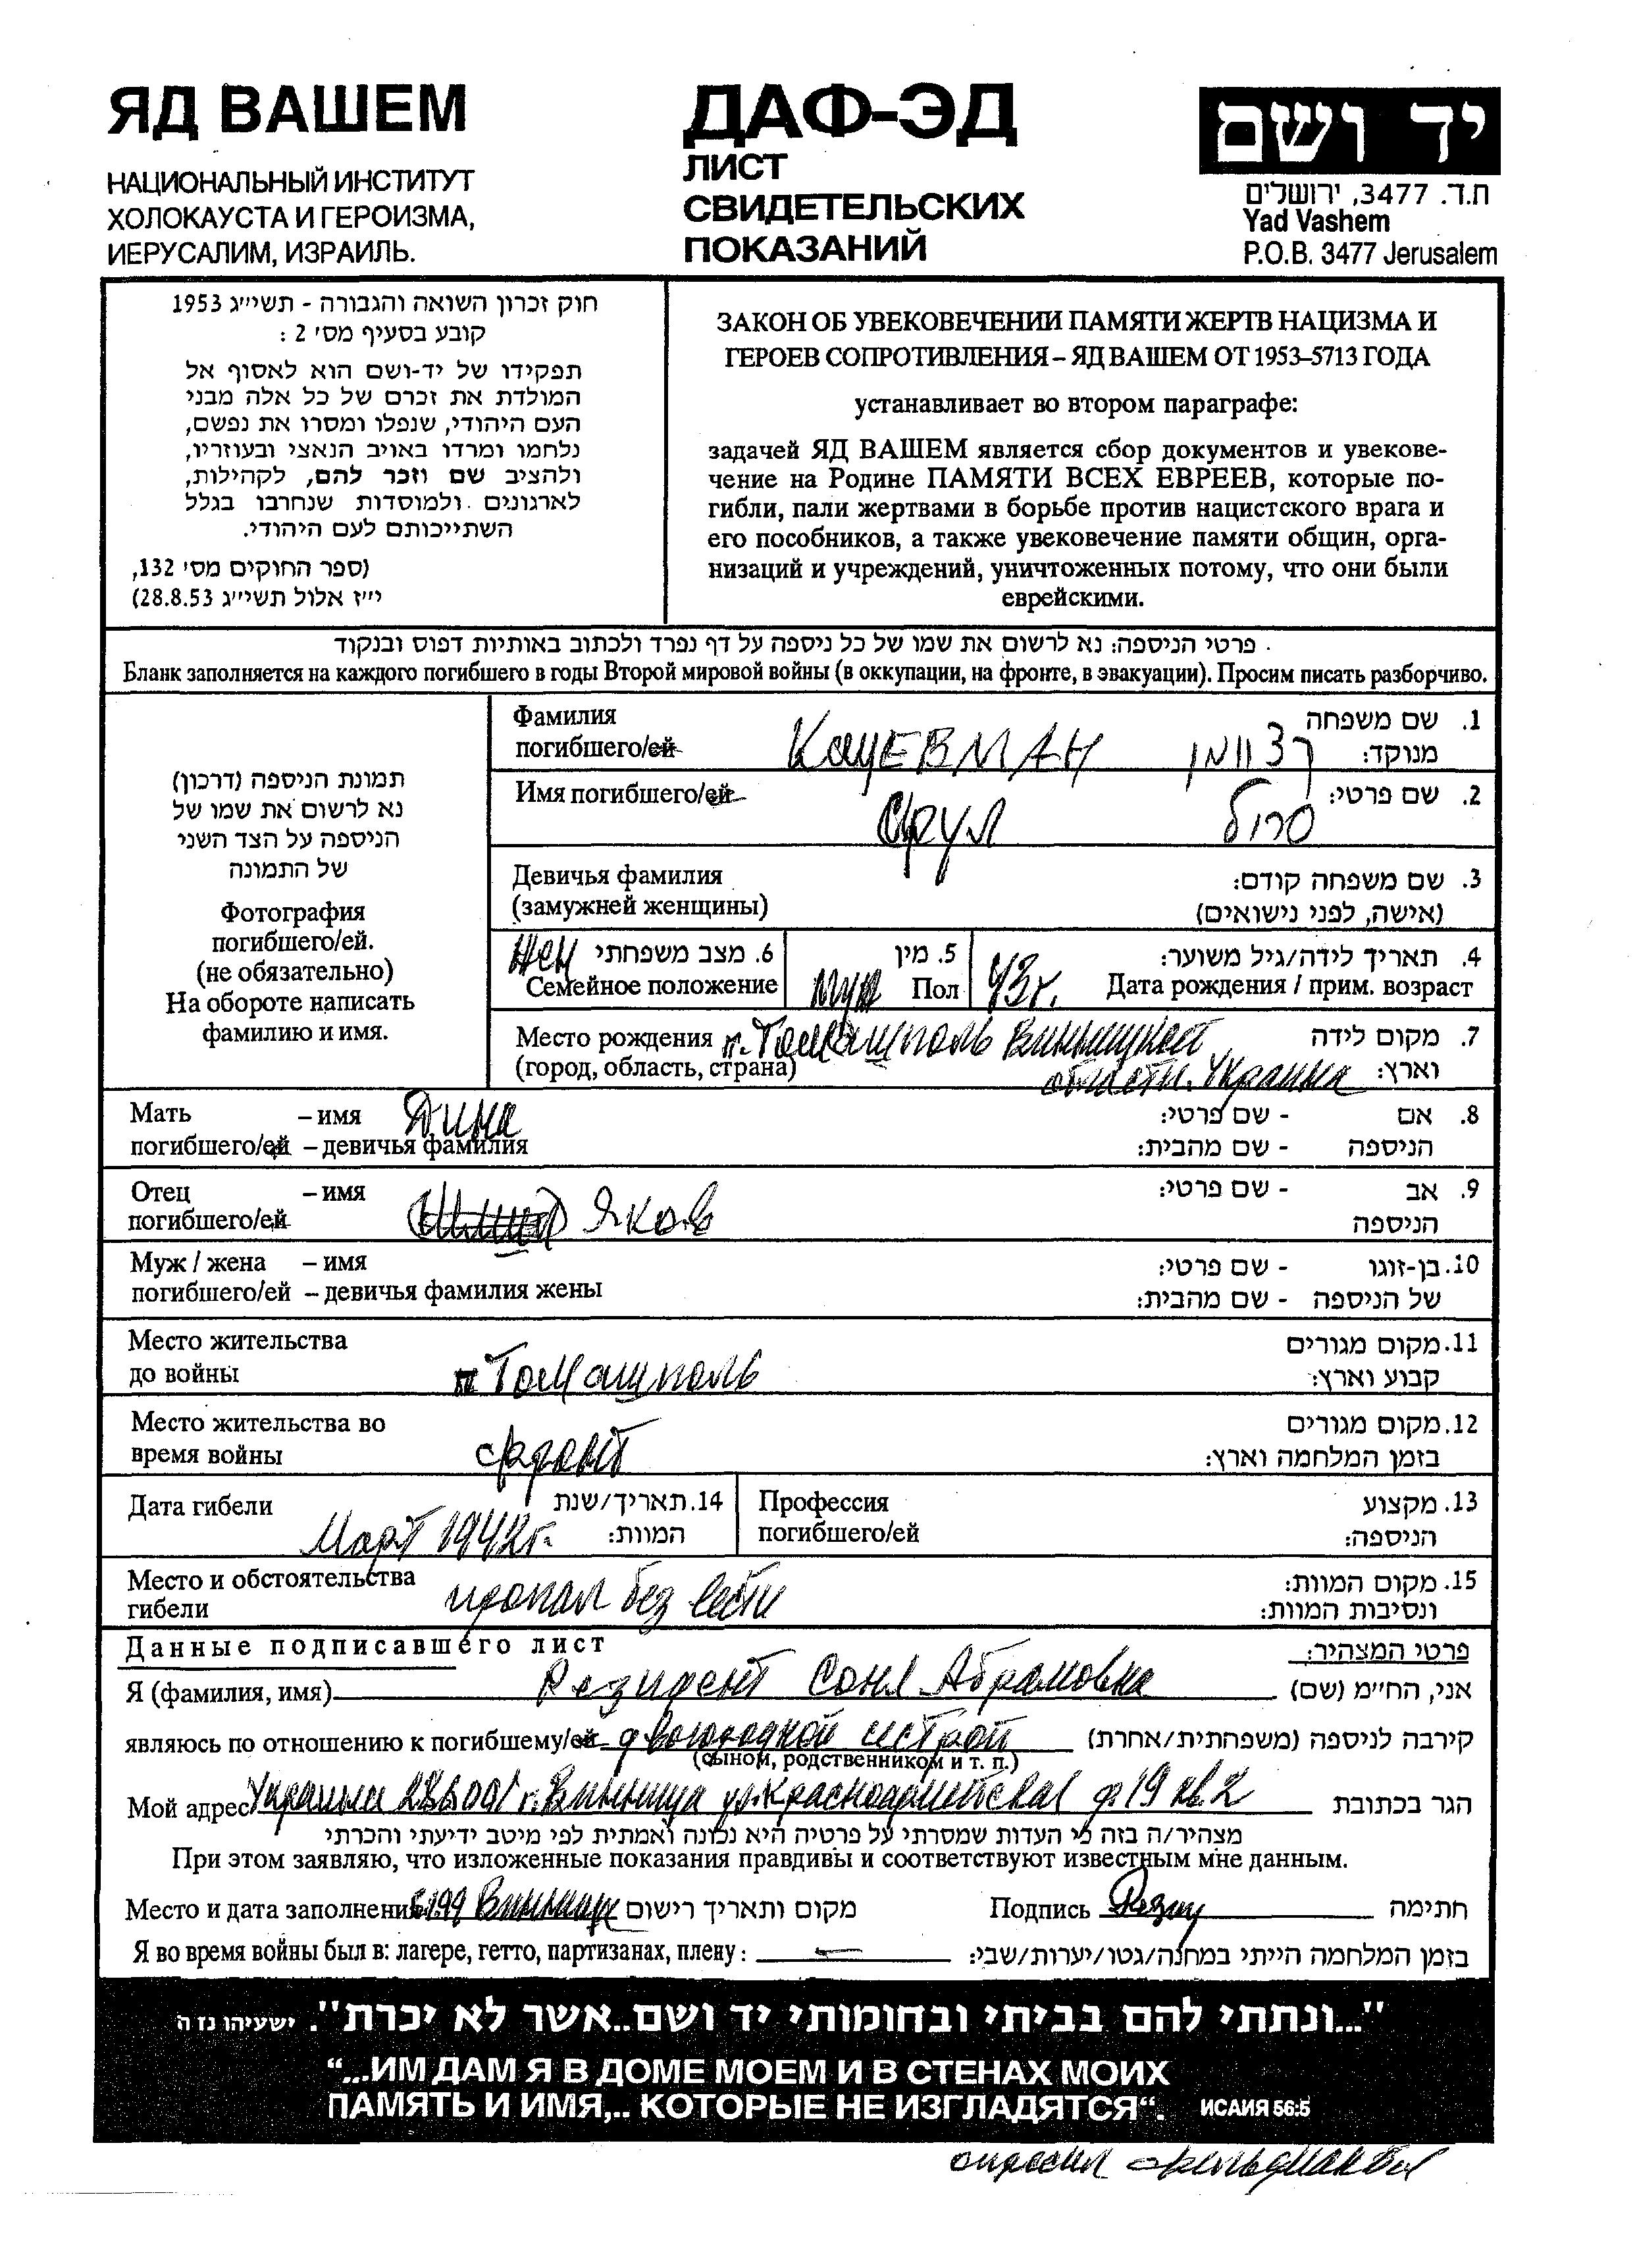 ЯД ВАШЕМ
НАЦИОНАЛЬНЫЙ ИНСТИТУТ
ХОЛОКАУСТА И ГЕРОИЗМА,
ИЕРУСАЛИМ, ИЗРАИЛЬ.
ДАФ-ЭД
ЛИСТ
СВИДЕТЕЛЬСКИХ
ПОКАЗАНИЙ
יד ושם
ת.ד. 3477, ירושלים
Yad Vashem
P.O.B. 3477 Jerusalem
חוק זכרון השואה והגבורה - תשי״ג 1953
קובע בסעיף מס׳ 2 :
תפקידו של יד-ושם הוא לאסוף אל
המולדת את זכרם של כל אלה מבני
העם היהודי, שנפלו ומסרו את נפשם,
נלחמו ומרדו באויב הנאצי ובעוזריו,
ולהציב שם וזכר להם, לקהילות,
לארגונים ולמוסדות שנחרבו בגלל
השתייכותם לעם היהודי.
(ספר החוקים מס׳ 132,
י״ז אלול תשי״ג 28.8.53)
ЗАКОН ОБ УВЕКОВЕЧЕНИИ ПАМЯТИ ЖЕРТВ НАЦИЗМА И
ГЕРОЕВ СОПРОТИВЛЕНИЯ – ЯД ВАШЕМ ОТ 1953–5713 ГОДА
устанавливает во втором параграфе:
задачей ЯД ВАШЕМ является сбор документов и увекове-
чение на Родине ПАМЯТИ ВСЕХ ЕВРЕЕВ, которые по-
гибли, пали жертвами в борьбе против нацистского врага и
его пособников, а также увековечение памяти общин, орга-
низаций и учреждений, уничтоженных потому, что они были
еврейскими.
פרטי הניספה: נא לרשום את שמו של כל ניספה על דף נפרד ולכתוב באותיות דפוס ובנקוד
Бланк заполняется на каждого погибшего в годы Второй мировой войны (в оккупации, на фронте, в эвакуации). Просим писать разборчиво.
תמונת הניספה (דרכון)
נא לרשום את שמו של
הניספה על הצד השני
של התמונה
Фотография
погибшего/ей.
(не обязательно)
На обороте написать
фамилию и имя.
Фамилия 1. שם משפחה
погибшего/ей КацЕВМАН קצוומן מנוקד:
Имя погибшего/ей Срул סרול 2. שם פרטי:
Девичья фамилия 3. שם משפחה קודם:
(замужней женщины) (אישה, לפני נישואים)
жен 6. מצב משפחתי 5. מין 4. תאריך לידה/גיל משוער:
Семейное положение муж Пол 43г. Дата рождения / прим. возраст
Место рождения п. Томашполь Винницкой 7. מקום לידה
(город, область, страна) области. Украина וארץ:
Мать – имя Дина 8. אם - שם פרטי:
погибшего/ей – девичья фамилия הניספה - שם מהבית:
Отец – имя 9. אב - שם פרטי:
погибшего/ей Яков הניספה
Муж / жена – имя 10. בן-זוגו - שם פרטי:
погибшего/ей – девичья фамилия жены של הניספה - שם מהבית:
Место жительства 11. מקום מגורים
до войны п Томашполь קבוע וארץ:
Место жительства во 12. מקום מגורים
время войны фронт בזמן המלחמה וארץ:
Дата гибели 14. תאריך/שנת Профессия 13. מקצוע
Март 1942г. המוות: погибшего/ей הניספה:
Место и обстоятельства 15. מקום המוות:
гибели пропал без вести ונסיבות המוות:
Данные подписавшего лист פרטי המצהיר:
Я (фамилия, имя) Резидент Соня Абрамовна אני, החי״מ (שם)
являюсь по отношению к погибшему/ей двоюродной сестрой קירבה לניספה (משפחתית/אחרת)
(сыном, родственником и т. п.)
Мой адрес Украина 286001 г. Винница ул. Красноармейская д. 19 кв. 2 הגר בכתובת
מצהיר/ה בזה כי העדות שמסרתי על פרטיה היא נכונה ואמתית לפי מיטב ידיעתי והכרתי
При этом заявляю, что изложенные показания правдивы и соответствуют известным мне данным.
Место и дата заполнения Винница מקום ותאריך רישום Подпись חתימה
Я во время войны был в: лагере, гетто, партизанах, плену: – בזמן המלחמה הייתי במחנה/גטו/יערות/שבי:
"...ונתתי להם בביתי ובחומותי יד ושם..אשר לא יכרת". ישעיהו נז ה
“...ИМ ДАМ Я В ДОМЕ МОЕМ И В СТЕНАХ МОИХ
ПАМЯТЬ И ИМЯ,.. КОТОРЫЕ НЕ ИЗГЛАДЯТСЯ“. ИСАИЯ 56:5